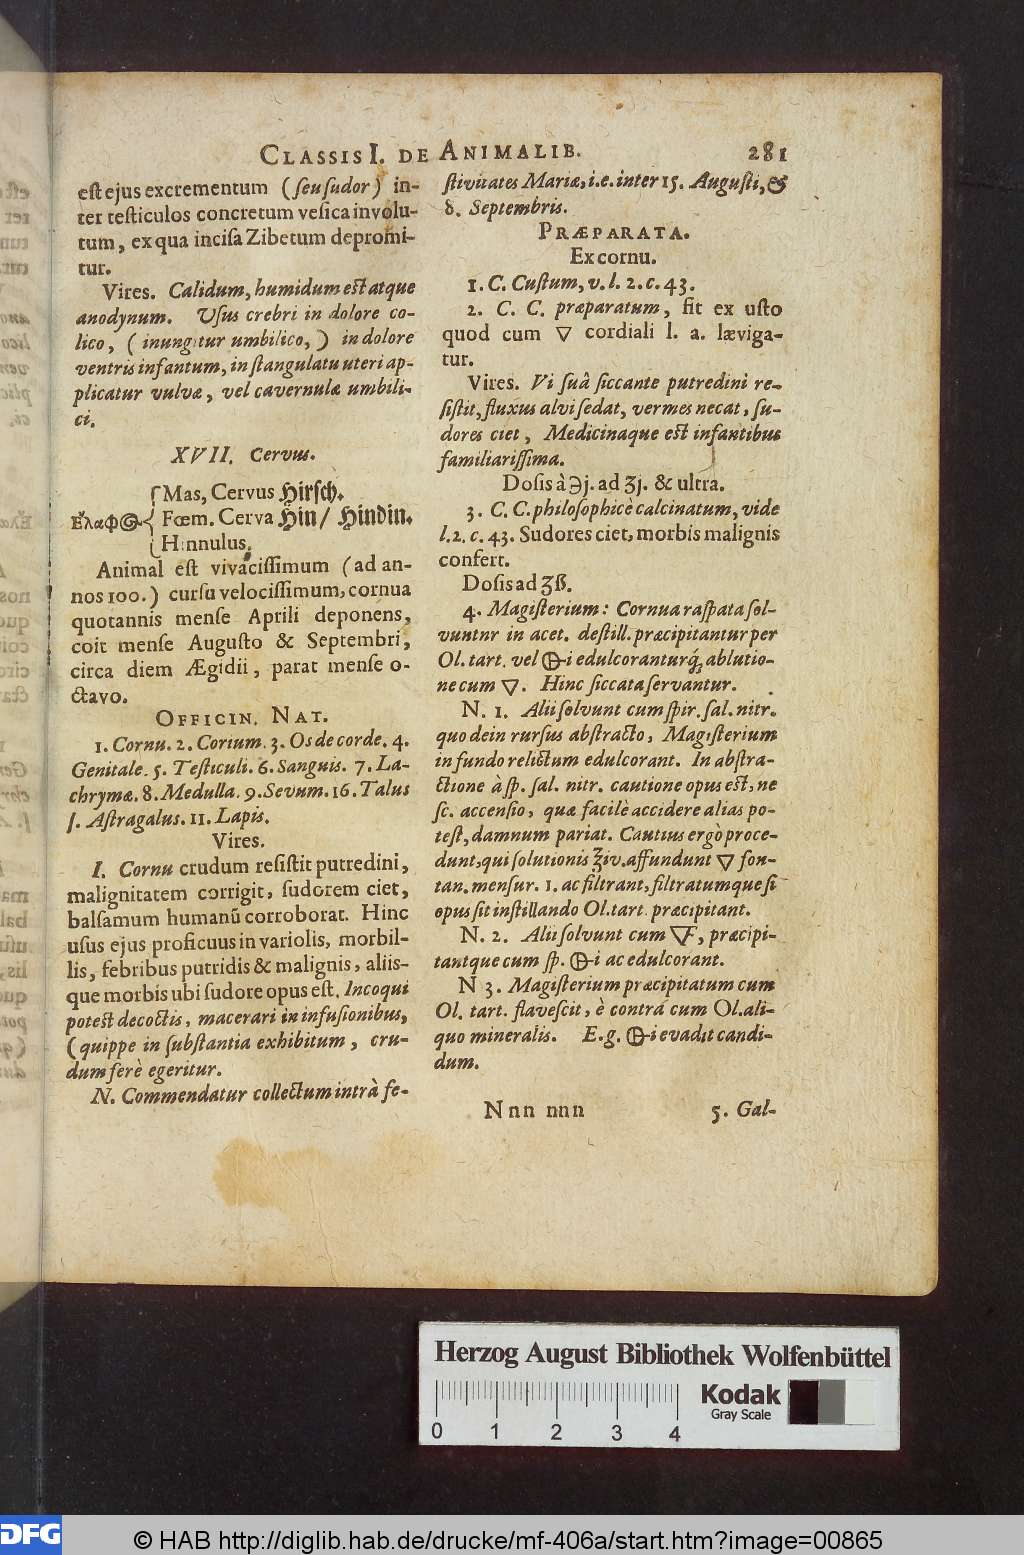 CLASSIS I. DE ANIMALIB. 281
est ejus excrementum (seu sudor) in-
ter testiculos concretum vesica involu-
tum, ex qua incisa Zibetum depromi-
tur.
Vires. Calidum, humidum est atque
anodynum. Usus crebri in dolore co-
lico, (inungitur umbilico,) in dolore
ventris infantum, in stangulatu uteri ap-
plicatur vulvæ, vel cavernulæ umbili-
ci.
XVII. Cervus.
Mas, Cervus Hirsch.
Ἔλαφος Fœm. Cerva Hin / Hindin.
Hinnulus.
Animal est vivacissimum (ad an-
nos 100.) cursu velocissimum, cornua
quotannis mense Aprili deponens,
coit mense Augusto & Septembri,
circa diem Ægidii, parat mense o-
ctavo.
OFFICIN. NAT.
1. Cornu. 2. Corium. 3. Os de corde. 4.
Genitale. 5. Testiculi. 6. Sanguis. 7. La-
chrymæ. 8. Medulla. 9. Sevum. 16. Talus
s. Astragalus. 11. Lapis.
Vires.
I. Cornu crudum resistit putredini,
malignitatem corrigit, sudorem ciet,
balsamum humanū corroborat. Hinc
usus ejus proficuus in variolis, morbil-
lis, febribus putridis & malignis, aliis-
que morbis ubi sudore opus est. Incoqui
potest decoctis, macerari in infusionibus,
(quippe in substantia exhibitum, cru-
dum ferè egeritur.
N. Commendatur collectum intrà fe-
stivitates Mariæ, i.e. inter 15. Augusti, &
8. Septembris.
PRÆPARATA.
Ex cornu.
1. C. Custum, v. l. 2. c. 43.
2. C. C. præparatum, fit ex usto
quod cum 🜄 cordiali l. a. læviga-
tur.
Vires. Vi suâ siccante putredini re-
sistit, fluxus alvi sedat, vermes necat, su-
dores ciet, Medicinaque est infantibus
familiarissima.
Dosis à ℈j. ad ʒj. & ultra.
3. C. C. philosophicè calcinatum, vide
l. 2. c. 43. Sudores ciet, morbis malignis
confert.
Dosis ad ʒß.
4. Magisterium: Cornua raspata sol-
vuntnr in acet. destill. præcipitantur per
Ol. tart. vel 🜖i edulcoranturq́; ablutio-
ne cum 🜄. Hinc siccata servantur.
N. 1. Alii solvunt cum spir. sal. nitr.
quo dein rursus abstracto, Magisterium
in fundo relictum edulcorant. In abstra-
ctione à sp. sal. nitr. cautione opus est, ne
sc. accensio, quæ facilè accidere alias po-
test, damnum pariat. Cautius ergò proce-
dunt, qui solutionis ℥iv. affundunt 🜄 fon-
tan. mensur. 1. ac filtrant, filtratumque si
opus sit instillando Ol. tart. præcipitant.
N. 2. Alii solvunt cum 🜅, præcipi-
tantque cum sp. 🜖i ac edulcorant.
N 3. Magisterium præcipitatum cum
Ol. tart. flavescit, è contra cum Ol. ali-
quo mineralis. E. g. 🜖i evadit candi-
dum.
Nnn nnn 5. Gal-
Herzog August Bibliothek Wolfenbüttel
Kodak
Gray Scale
0 1 2 3 4
DFG
© HAB http://diglib.hab.de/drucke/mf-406a/start.htm?image=00865